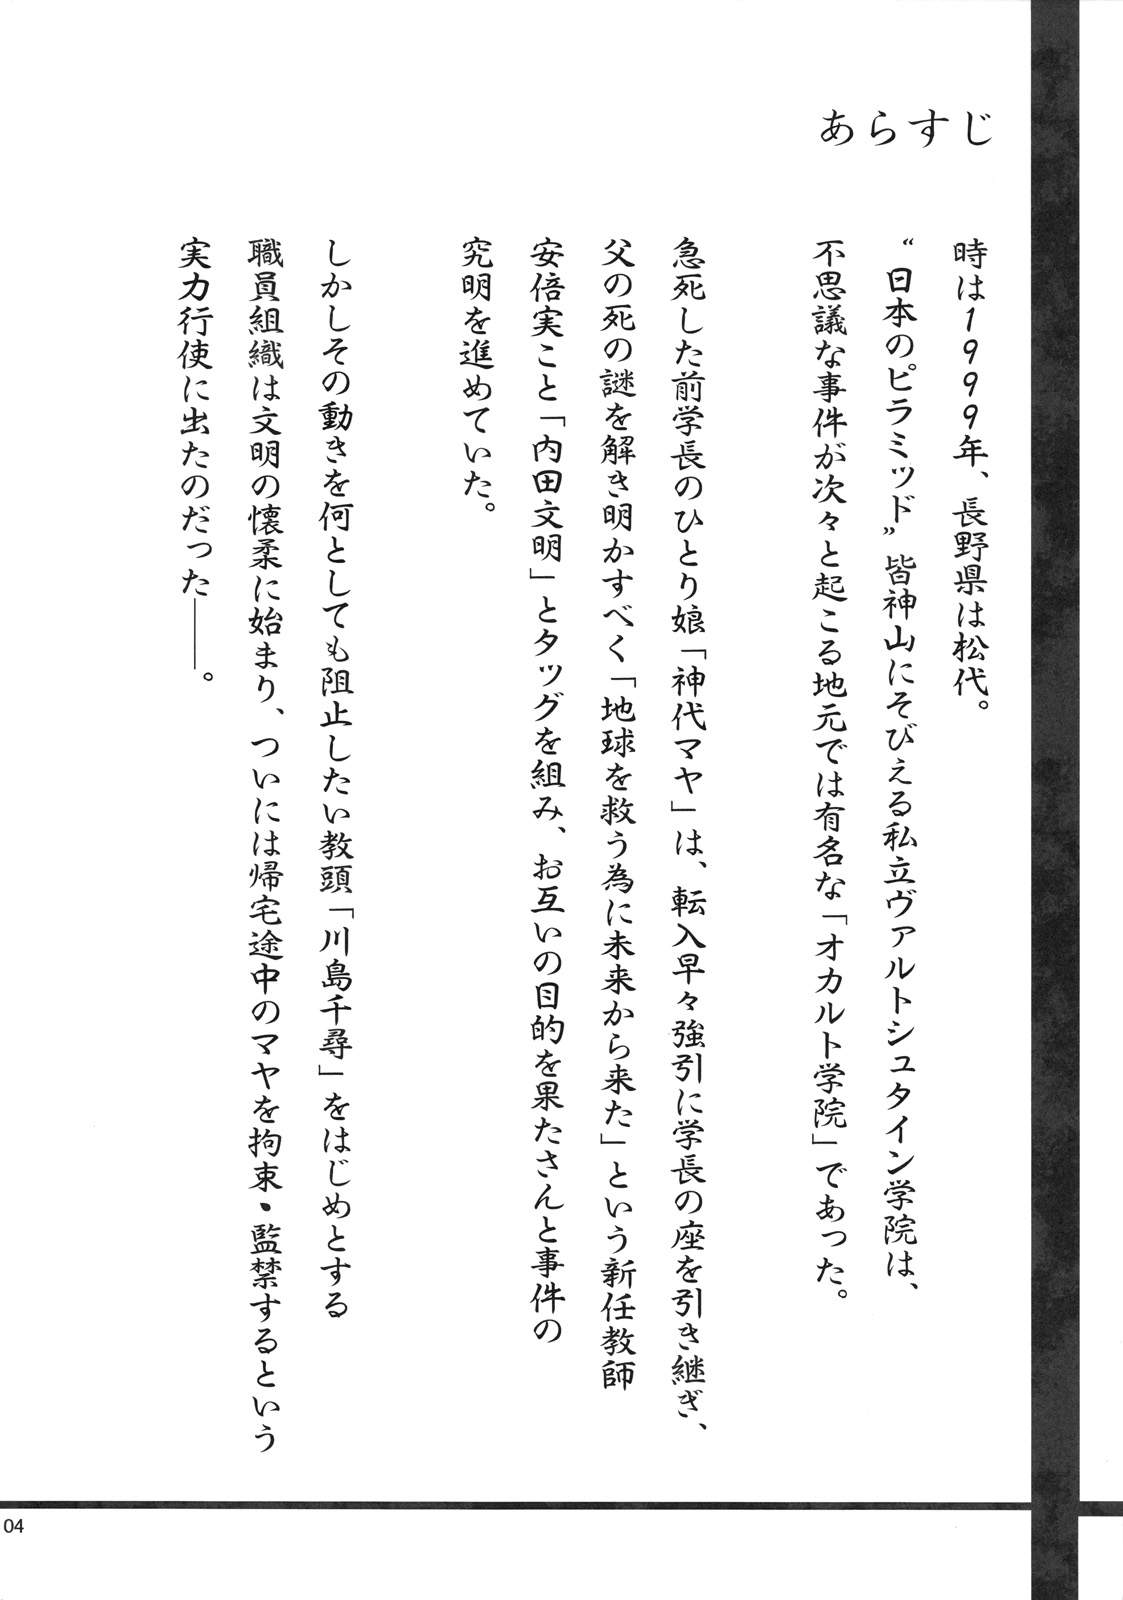 あらすじ
時は1999年、長野県は松代。
“日本のピラミッド”皆神山にそびえる私立ヴァルトシュタイン学院は、
不思議な事件が次々と起こる地元では有名な「オカルト学院」であった。
急死した前学長のひとり娘「神代マヤ」は、転入早々強引に学長の座を引き継ぎ、
父の死の謎を解き明かすべく「地球を救う為に未来から来た」という新任教師
安倍実こと「内田文明」とタッグを組み、お互いの目的を果たさんと事件の
究明を進めていた。
しかしその動きを何としても阻止したい教頭「川島千尋」をはじめとする
職員組織は文明の懐柔に始まり、ついには帰宅途中のマヤを拘束・監禁するという
実力行使に出たのだった――。
04